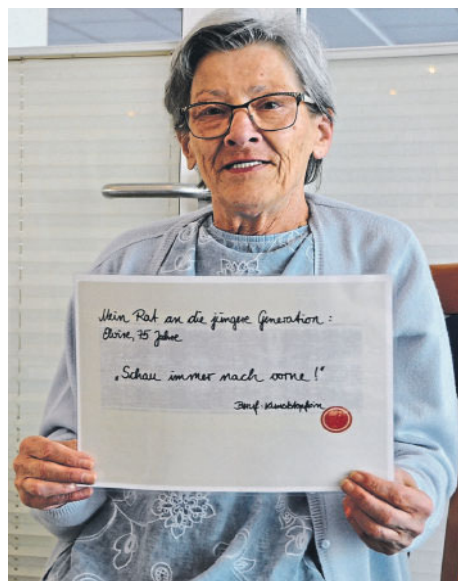 Mein Rat an die jüngere Generation:
Elvire, 75 Jahre
„Schau immer nach vorne!“
Beruf: